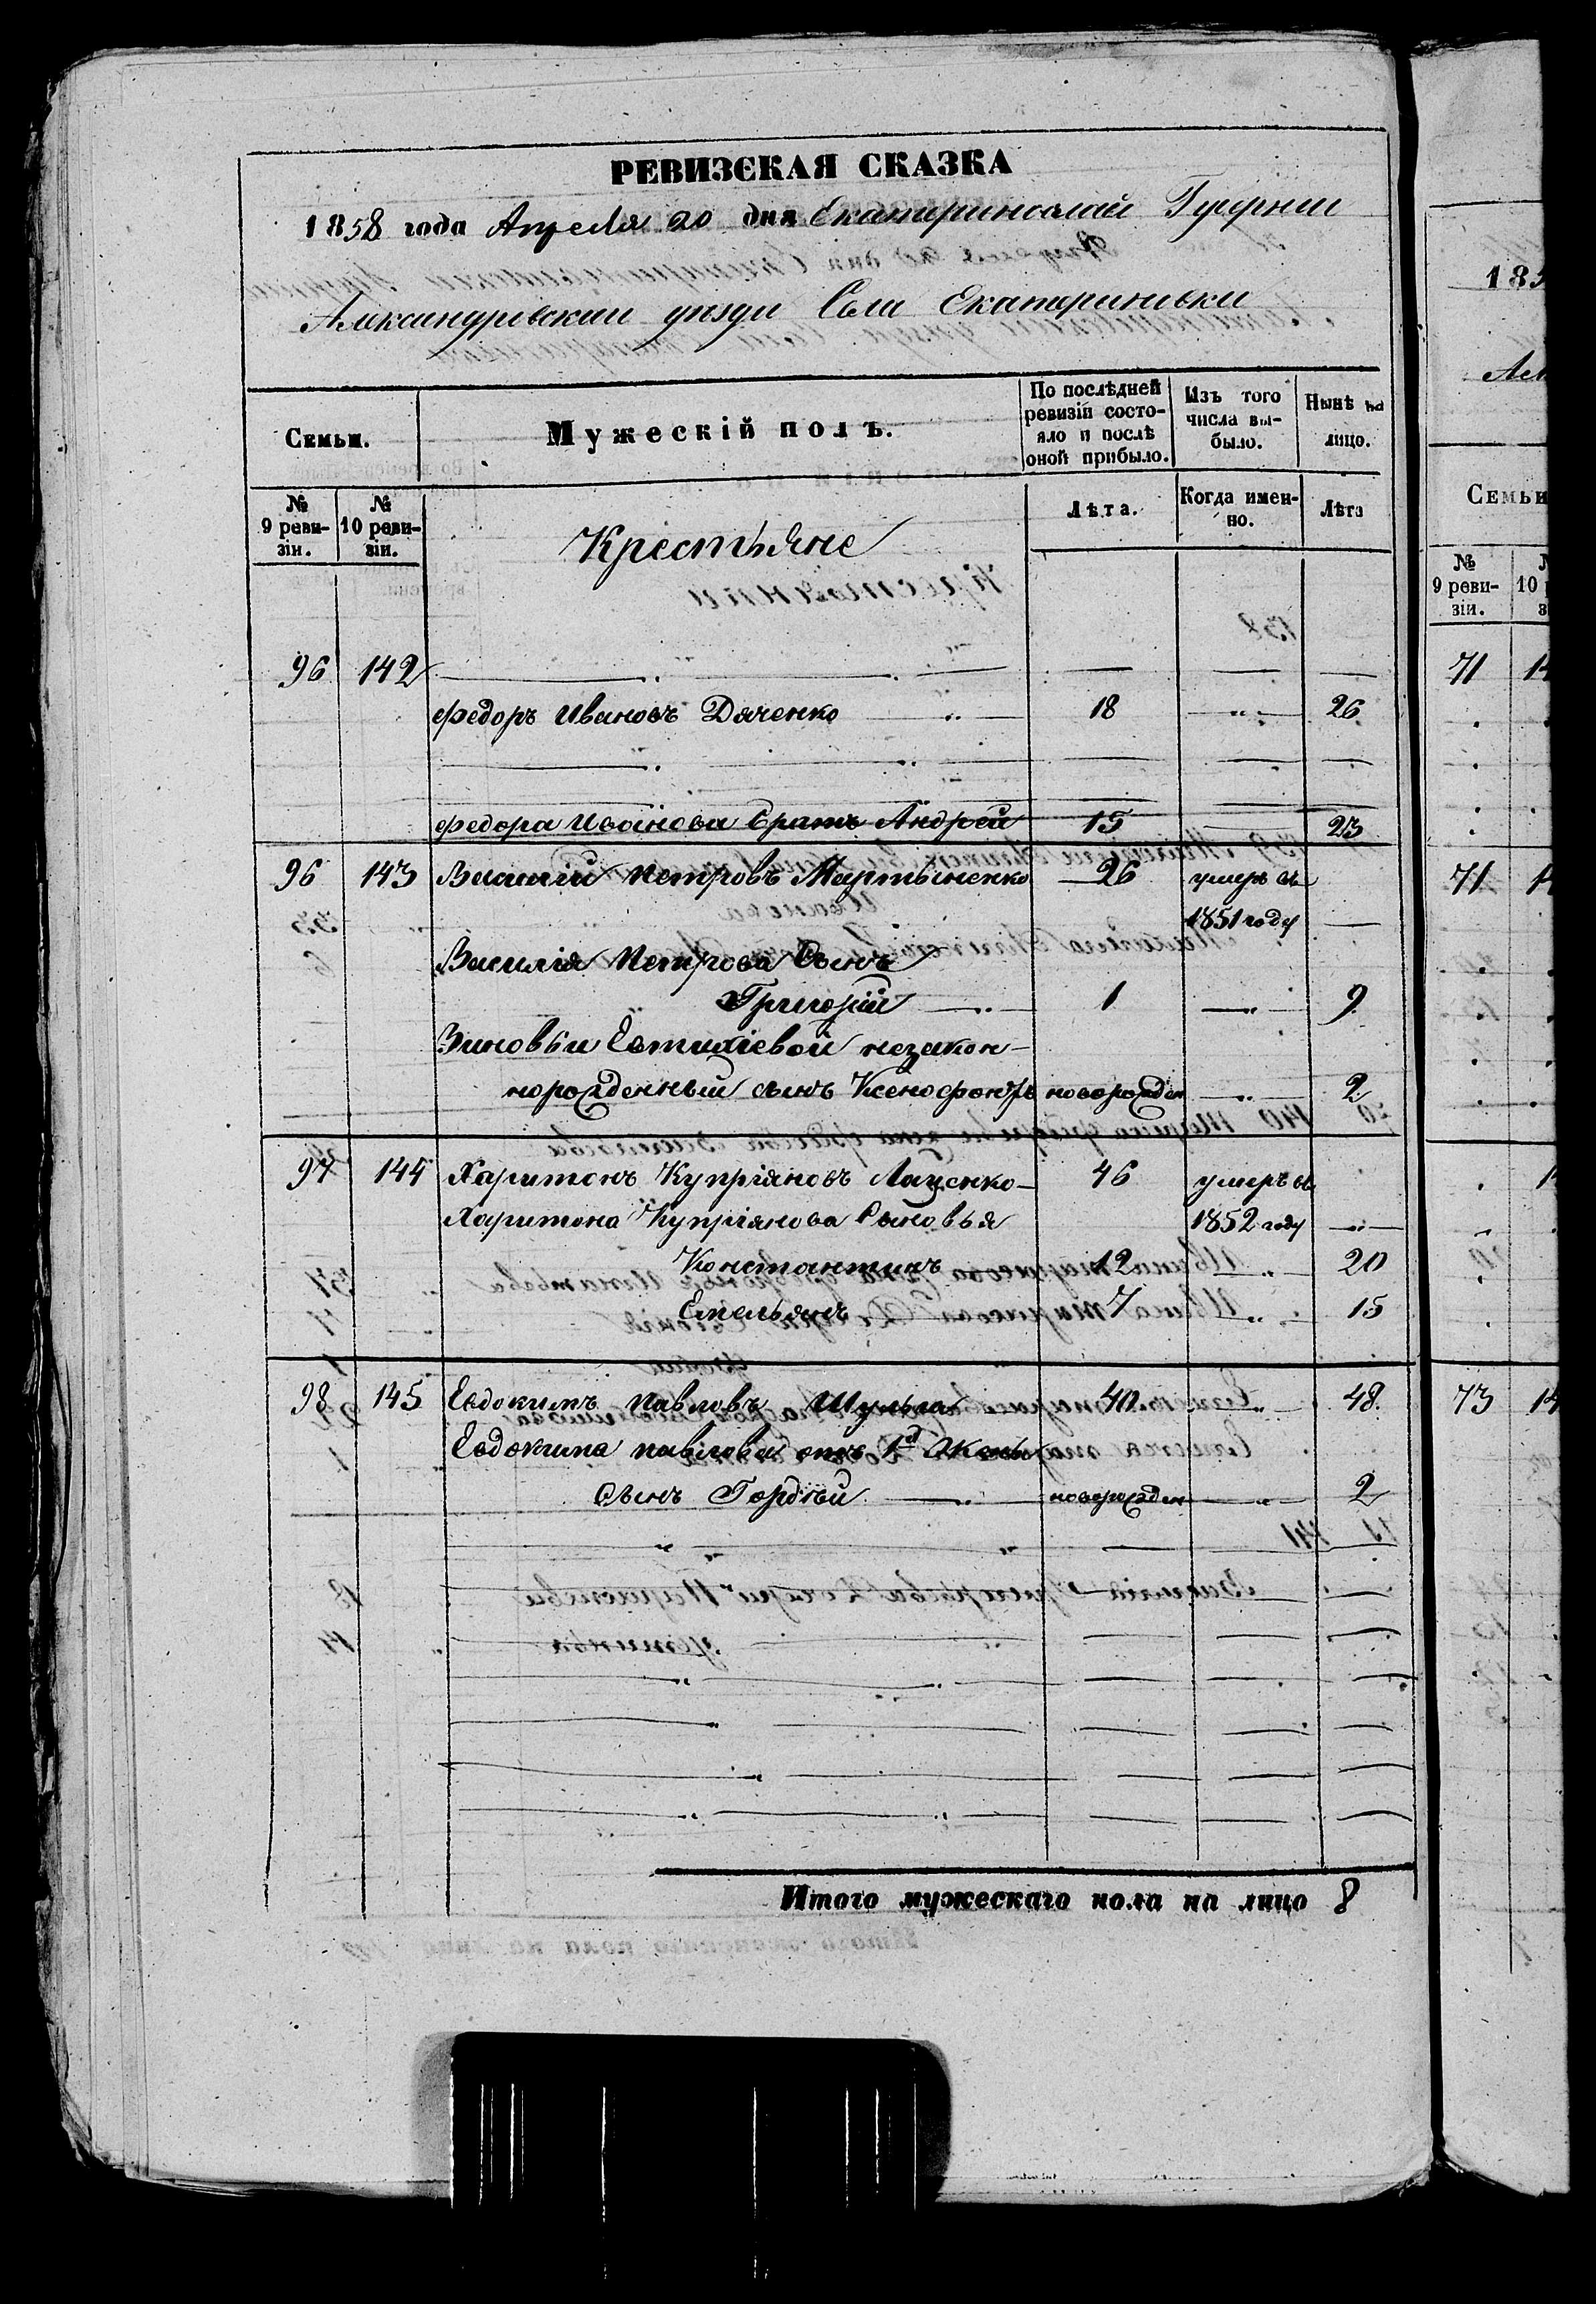 РЕВИЗСКАЯ СКАЗКА
1858 года Апреля 20 дня Екатеринославской Губернии
Александровского уезда Села Екатериновки
Семьи.
Мужескій полъ.
По послѣдней ревизіи состояло и послѣ оной прибыло.
Изъ того числа выбыло.
Нынѣ на лицо.
№ 9 ревизіи.
№ 10 ревизіи.
Лѣта.
Когда именно.
Лѣта
Крестьяне
96 142
Федоръ Ивановъ Дяченко 18 26
Федора Иванова братъ Андрей 15 23
96 143 Василій Петровъ Мартыненко 26 умеръ въ
1851 году
Василія Петрова Сынъ
Григорій 1 9
Зиновьи Евтихіевой незакон-
норожденный сынъ Ксенофонтъ новорожден 2
97 144 Харитонъ Купріяновъ Лаценко 46 умеръ въ
Харитона Купріянова Сыновья 1852 году
Константинъ 12 20
Емельянъ 7 15
98 145 Евдокимъ Павловъ Шульга 40 48
Евдокима Павлова отъ 1й Жены
Сынъ Гордѣй новорожден 2
Итого мужескаго пола на лицо 8
185
Семьи
№ 9 ревизіи.
71
71
73